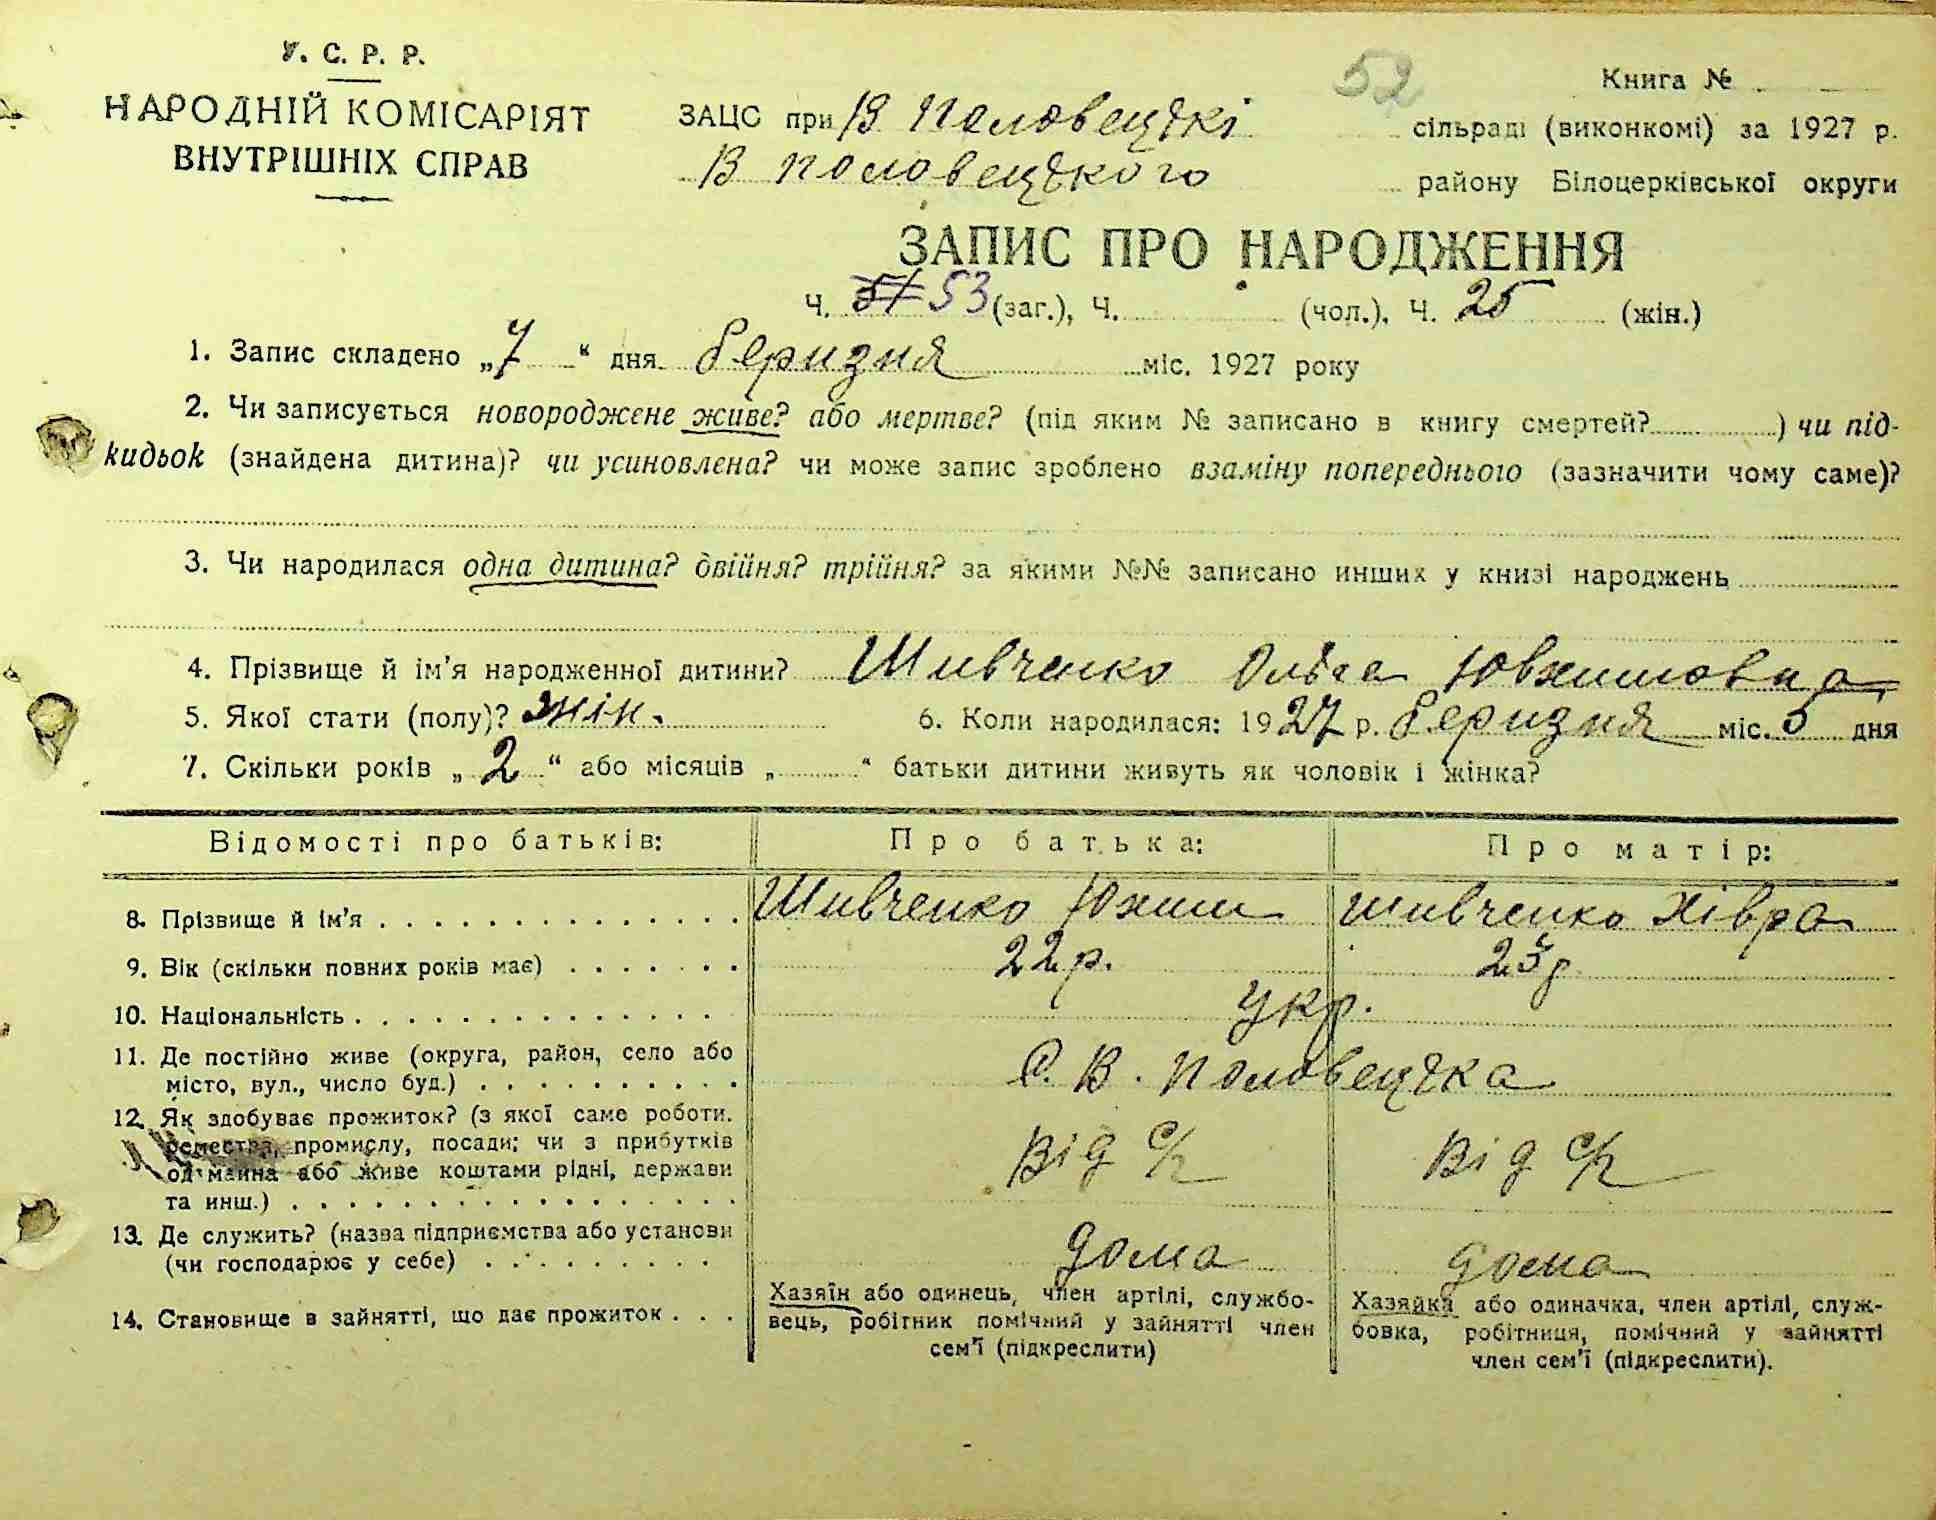 У. С. Р. Р.
НАРОДНІЙ КОМІСАРІЯТ
ВНУТРІШНІХ СПРАВ
52
Книга №
ЗАЦС при В Половецькі сільраді (виконкомі) за 1927 р.
В Половецького району Білоцерківської округи
ЗАПИС ПРО НАРОДЖЕННЯ
Ч. 51 53 (заг.), Ч. (чол.), Ч. 25 (жін.)
1. Запис складено „7“ дня беризня міс. 1927 року
2. Чи записується новороджене живе? або мертве? (під яким № записано в книгу смертей? ) чи під-
кидьок (знайдена дитина)? чи усиновлена? чи може запис зроблено взаміну попереднього (зазначити чому саме)?
3. Чи народилася одна дитина? двійня? трійня? за якими №№ записано инших у книзі народжень
4. Прізвище й ім'я народженної дитини? Шивченко Ольга Ювхимовна
5. Якої стати (полу)? жін. 6. Коли народилася: 1927 р. беризня міс. 5 дня
7. Скільки років „2“ або місяців „ “ батьки дитини живуть як чоловік і жінка?
Відомості про батьків: Про батька: Про матір:
8. Прізвище й ім'я Шивченко Юхим Шивченко Хівра
9. Вік (скільки повних років має) 22 р. 23 р
10. Національність Укр.
11. Де постійно живе (округа, район, село або
місто, вул., число буд.) С. В. Половецька
12. Як здобуває прожиток? (з якої саме роботи.
ремества, промислу, посади; чи з прибутків
од майна або живе коштами рідні, держави
та инш.) Від с/г Від с/г
13. Де служить? (назва підприємства або установи
(чи господарює у себе) дома дома
14. Становище в зайнятті, що дає прожиток
Хазяїн або одинець, член артілі, службо-
вець, робітник помічний у зайнятті член
сем'ї (підкреслити)
Хазяйка або одиначка, член артілі, служ-
бовка, робітниця, помічний у зайнятті
член сем'ї (підкреслити).